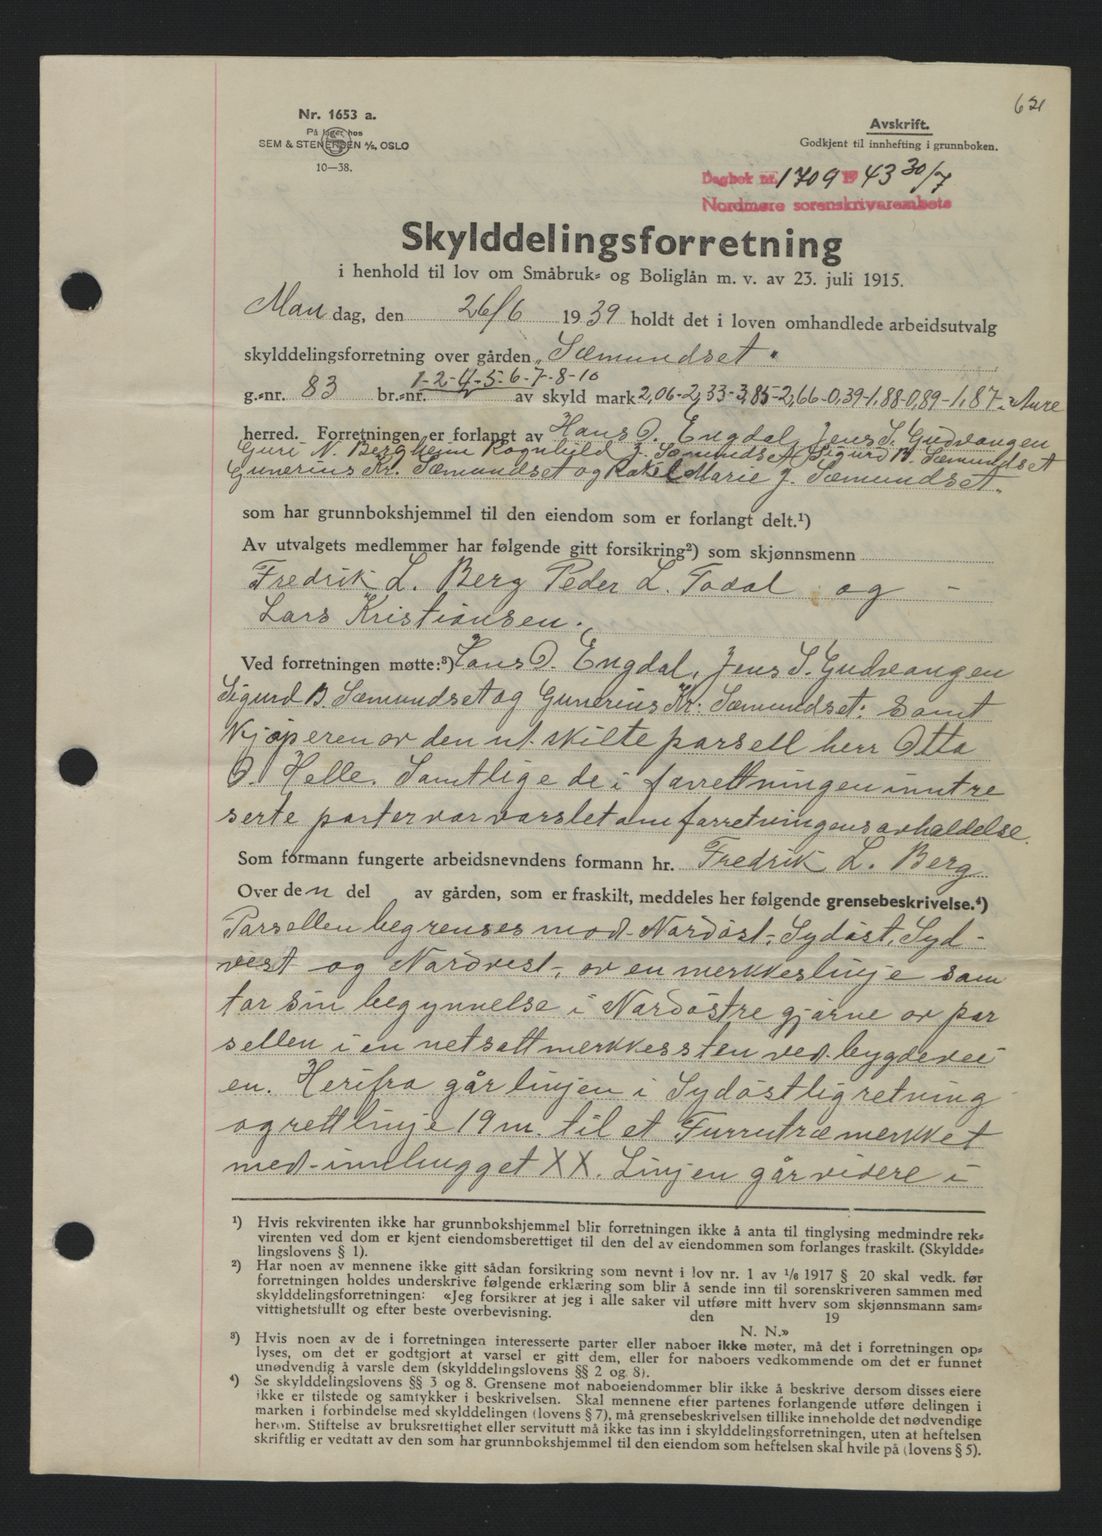 621
Nr. 1653 a.
På lager hos
SEM & STENERSEN A/S, OSLO
10-38.
Avskrift.
Godkjent til innhefting i grunnboken.
Dagbok nr. 1709 19 43 30/7
Nordmøre sorenskriverembete
Skylddelingsforretning
i henhold til lov om Småbruk- og Boliglån m. v. av 23. juli 1915.
Man dag, den 26/6 1939 holdt det i loven omhandlede arbeidsutvalg
skylddelingsforretning over gården „Sæmundset"
g.-nr. 83 br.-nr. 1-2-4-5-6-7-8-10 av skyld mark 2,06-2,33-3,85-2,66-0,39-1,88-0,89-1,87 i Aure
herred. Forretningen er forlangt av Hans O. Engdal, Jens S. Gudvangen
Guri N. Bergheim Rognhild J. Sæmundset Sigurd B. Sæmundset
Gunerius Kr. Sæmundset og Rakel Marie J. Sæmundset.
som har grunnbokshjemmel til den eiendom som er forlangt delt.¹)
Av utvalgets medlemmer har følgende gitt forsikring²) som skjønnsmenn
Fredrik L. Berg Peder L. Todal og -
Lars Kristiansen.
Ved forretningen møtte:³) Hans O. Engdal, Jens S. Gudvangen
Sigurd B. Sæmundset og Gunerius Kr. Sæmundset. Samt
Kjøperen av den ut skilte parsell herr Otto
O. Helle. Samtlige de i forrettningen inntre
serte parter var varslet om forretningens avholdelse.
Som formann fungerte arbeidsnevndens formann hr. Fredrik L. Berg
Over den del av gården, som er fraskilt, meddeles her følgende grensebeskrivelse.⁴)
Parsellen begrenses mod Nordøst, Sydøst, Syd-
vest og Nordvest, av en merkkeslinje som
tar sin begynnelse i Nordøstre gjørne av par
sellen i en netsatt merkkessten ved bygdevei
en. Herifra går linjen i Sydøstlig retning
og rett linje 19 m. til et Furrutræ merkket
med innhugget XX. Linjen går videre i
¹) Hvis rekvirenten ikke har grunnbokshjemmel blir forretningen ikke å anta til tinglysing medmindre rek-
virenten ved dom er kjent eiendomsberettiget til den del av eiendommen som forlanges fraskilt. (Skyldde-
lingslovens § 1).
²) Har noen av mennene ikke gitt sådan forsikring som nevnt i lov nr. 1 av 1/6 1917 § 20 skal vedk. før
forretningen holdes underskrive følgende erklæring som blir å sende inn til sorenskriveren sammen med
skylddelingsforretningen: «Jeg forsikrer at jeg i alle saker vil utføre mitt hverv som skjønnsmann sam-
vittighetsfullt og efter beste overbevisning. den 19
N. N.»
³) Hvis noen av de i forretningen interesserte parter eller naboer ikke møter, må det i forretningen op-
lyses, om det er godtgjort at varsel er gitt dem, eller for naboers vedkommende om det er funnet
unødvendig å varsle dem (skylddelingslovens §§ 2 og 8).
⁴) Se skylddelingslovens §§ 3 og 8. Grensene mot naboeiendommer blir ikke å beskrive dersom disses eiere
ikke er tilstede og samtykker i beskrivelsen. Skal mennene efter partenes forlangende utføre delingen i
marken i forbindelse med skylddelingen (lovens § 7), må grensebeskrivelsen tillike inneholde det nødvendige
herom. Stiftelse av bruksrettighet eller servitutt må ikke tas inn i skylddelingsforretningen, uten at heftelsen
skriftlig er vedtatt av den som har grunnbokshjemmel til den eiendom som heftelsen skal hvile på (lovens § 5).